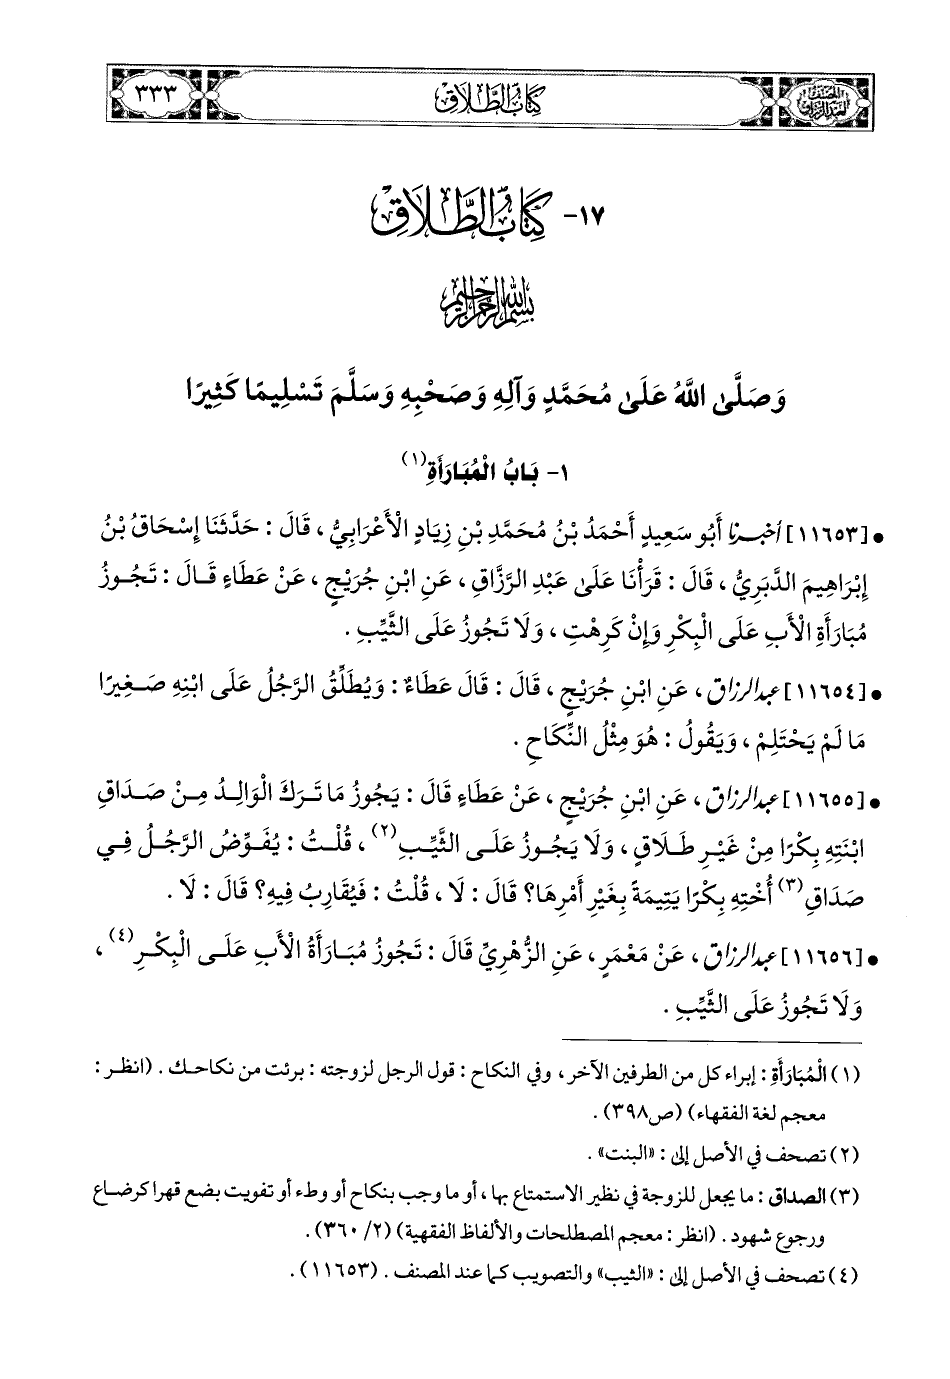 المصنف لعبد الرزاق
كتاب الطلاق
٣٣٣
١٧- كِتَابُ الطَّلَاقِ
بسم الله الرحمن الرحيم
وَصَلَّىٰ اللَّهُ عَلَىٰ مُحَمَّدٍ وَآلِهِ وَصَحْبِهِ وَسَلَّمَ تَسْلِيمًا كَثِيرًا
١- بَابُ الْمُبَارَأَةِ(١)
• [١١٦٥٣] أخبرنا أَبُو سَعِيدٍ أَحْمَدُ بْنُ مُحَمَّدِ بْنِ زِيَادٍ الْأَعْرَابِيُّ، قَالَ: حَدَّثَنَا إِسْحَاقُ بْنُ
إِبْرَاهِيمَ الدَّبَرِيُّ، قَالَ: قَرَأْنَا عَلَىٰ عَبْدِ الرَّزَّاقِ، عَنِ ابْنِ جُرَيْجٍ، عَنْ عَطَاءٍ قَالَ: تَجُوزُ
مُبَارَأَةِ الْأَبِ عَلَى الْبِكْرِ وَإِنْ كَرِهْتِ، وَلَا تَجُوزُ عَلَى الثَّيِّبِ.
• [١١٦٥٤] عبد الرزاق، عَنِ ابْنِ جُرَيْجٍ، قَالَ: قَالَ عَطَاءٌ: وَيُطَلِّقُ الرَّجُلُ عَلَى ابْنِهِ صَغِيرًا
مَا لَمْ يَحْتَلِمْ، وَيَقُولُ: هُوَ مِثْلُ النِّكَاحِ.
• [١١٦٥٥] عبد الرزاق، عَنِ ابْنِ جُرَيْجٍ، عَنْ عَطَاءٍ قَالَ: يَجُوزُ مَا تَرَكَ الْوَالِدُ مِنْ صَدَاقِ
ابْنَتِهِ بِكْرًا مِنْ غَيْرِ طَلَاقٍ، وَلَا يَجُوزُ عَلَى الثَّيِّبِ(٢)، قُلْتُ: يُفَوِّضُ الرَّجُلُ فِي
صَدَاقِ(٣) أُخْتِهِ بِكْرًا يَتِيمَةً بِغَيْرِ أَمْرِهَا؟ قَالَ: لَا، قُلْتُ: فَيُقَارِبُ فِيهِ؟ قَالَ: لَا.
• [١١٦٥٦] عبد الرزاق، عَنْ مَعْمَرٍ، عَنِ الزُّهْرِيِّ قَالَ: تَجُوزُ مُبَارَأَةُ الْأَبِ عَلَى الْبِكْرِ(٤)،
وَلَا تَجُوزُ عَلَى الثَّيِّبِ.
(١) الْمُبَارَأَةِ: إبراء كل من الطرفين الآخر، وفي النكاح: قول الرجل لزوجته: برئت من نكاحك. (انظر:
معجم لغة الفقهاء) (ص٣٩٨).
(٢) تصحف في الأصل إلى: «البنت».
(٣) الصداق: ما يجعل للزوجة في نظير الاستمتاع بها، أو ما وجب بنكاح أو وطء أو تفويت بضع قهرا كرضاع
ورجوع شهود. (انظر: معجم المصطلحات والألفاظ الفقهية) (٢/ ٣٦٠).
(٤) تصحف في الأصل إلى: «الثيب» والتصويب كما عند المصنف. (١١٦٥٣).